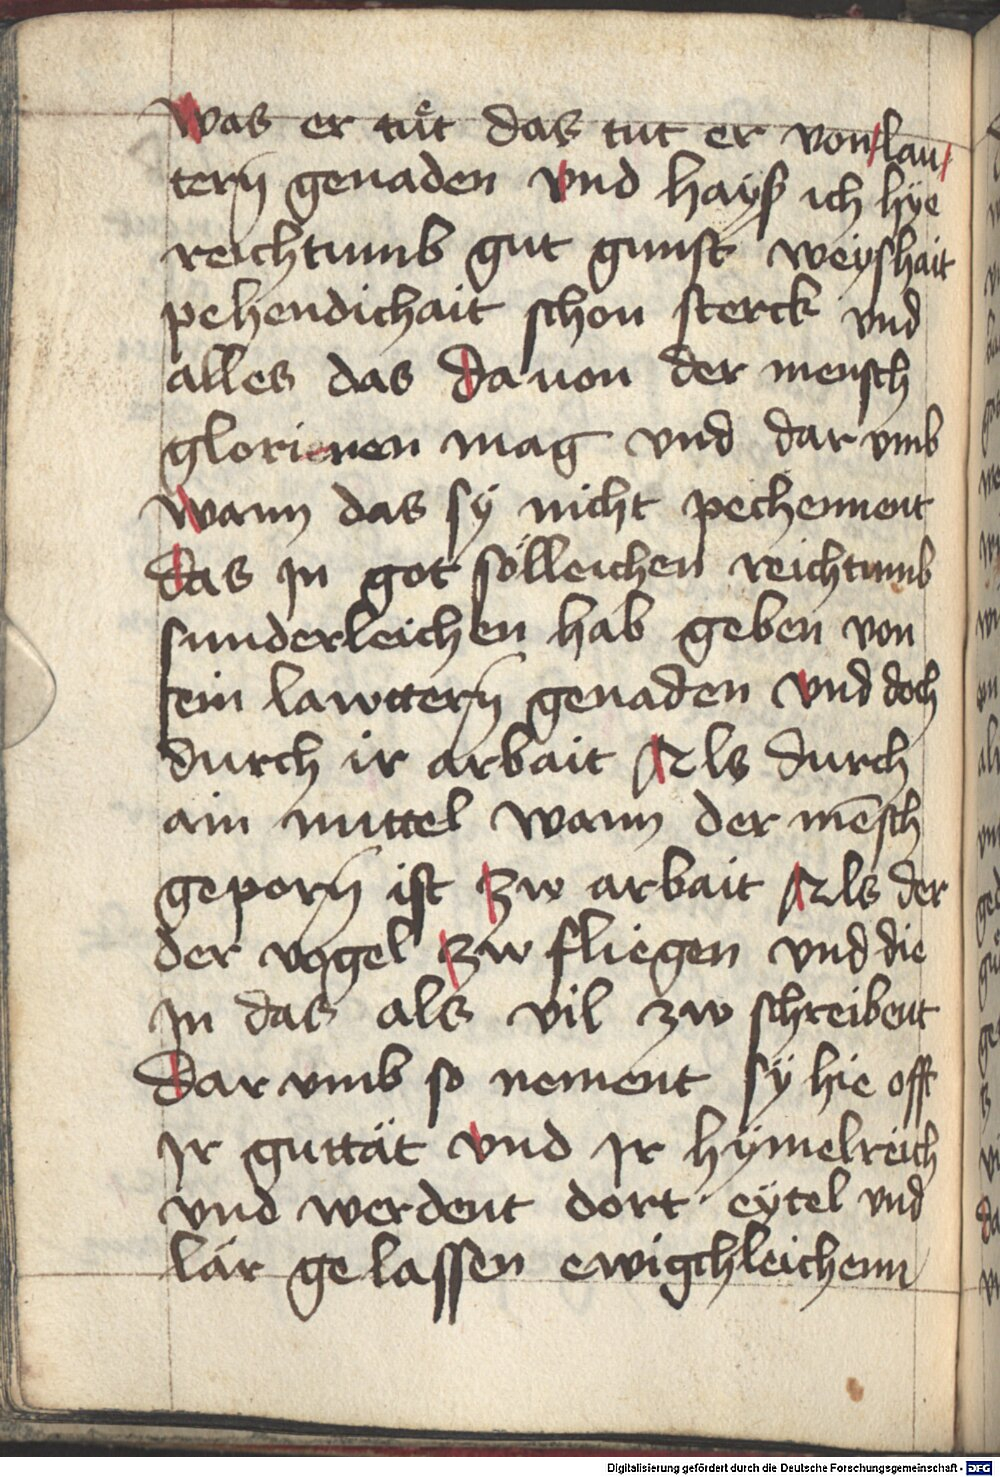 Was er tuͤt das tut er von lau
tern genaden vnd hayß ich hye
reichtumb gut gunst weyshait
pehendichait schon sterck vnd
alles das Dauon der mensch
glorieren mag vnd dar vmb
Wann das sÿ nicht pechennent
das In got sölleichen reichtumb
sunderleichen hab geben von
sein lawttern genaden vnd doch
durch ir arbait Als durch
ain mittel wann der mēsch
geporn ist Zw arbait Als der
der vogel zw fliegen vnd die
In das als vil zw schreibent
Dar vmb so nement sÿ hie offt
Ir guttät vnd Ir hÿmelreich
vnd werdent dort eÿtel vnd
lär gelassen ewigchleichenn
Digitalisierung gefördert durch die Deutsche Forschungsgemeinschaft - DFG